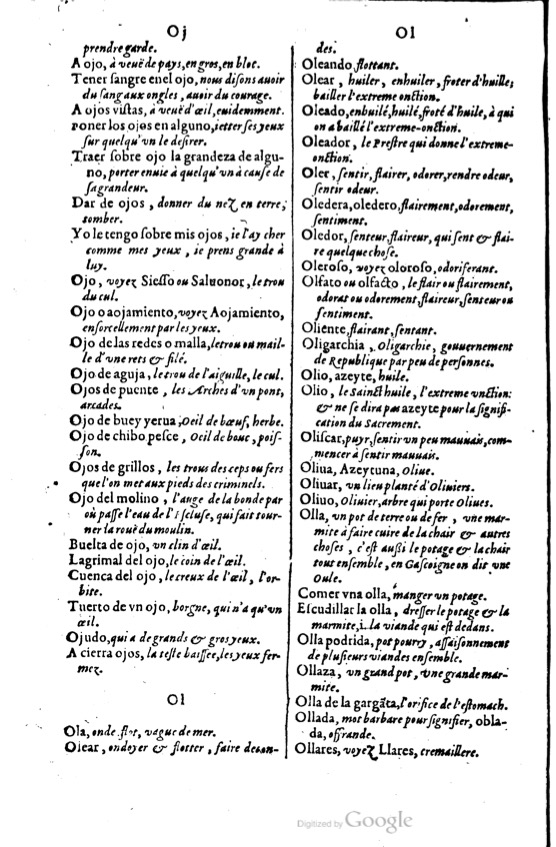 Oj
prendre garde.
A ojo, à veuë de pays, en gros, en bloc.
Tener sangre en el ojo, nous disons auoir
du sang aux ongles, auoir du courage.
A ojos vistas, à veuë d'œil, euidemment.
Poner los ojos en alguno, ietter ses yeux
sur quelqu'vn le desirer.
Traer sobre ojo la grandeza de algu-
no, porter enuie à quelqu'vn à cause de
sa grandeur.
Dar de ojos, donner du nez en terre,
tomber.
Yo le tengo sobre mis ojos, ie l'ay cher
comme mes yeux, ie prens grande à
luy.
Ojo, voyez Siesso ou Saluonor, le trou
du cul.
Ojo o aojamiento, voyez Aojamiento,
ensorcellement par les yeux.
Ojo de las redes o malla, le trou ou mail-
le d'vne rets & filé.
Ojo de aguja, le trou de l'aiguille, le cul.
Ojos de puente, les Arches d'vn pont,
arcades.
Ojo de buey yerua, Oeil de bœuf, herbe.
Ojo de chibo pesce, Oeil de bouc, pois-
son.
Ojos de grillos, les trous des ceps ou fers
que l'on met aux pieds des criminels.
Ojo del molino, l'ange de la bonde par
où passe l'eau de l'escluse, qui fait tour-
ner la rouë du moulin.
Buelta de ojo, vn clin d'œil.
Lagrimal del ojo, le coin de l'œil.
Cuenca del ojo, le creux de l'œil, l'or-
bite.
Tuerto de vn ojo, borgne, qui n'a qu'vn
œil.
Ojudo, qui a de grands & gros yeux.
A cierra ojos, la teste baissee, les yeux fer-
mez.
Ol
Ola, onde flot, vague de mer.
Olear, ondoyer & flotter, faire des on-
Ol
des.
Oleando flottant.
Olear, huiler, enhuiler, froter d'huille;
bailler l'extreme onction.
Oleado, enhuilé, huilé, froté d'huile, à qui
on a baillé l'extreme-onction.
Oleador, le Prestre qui donne l'extreme-
onction.
Oler, sentir, flairer, odorer, rendre odeur,
sentir odeur.
Oledera, oledero, flairement, odorement,
sentiment.
Oledor, senteur, flaireur, qui sent & flai-
re quelque chose.
Oleroso, voyez oloroso, odoriferant.
Olfato ou olfacto, le flair ou flairement,
odorat ou odorement, flaireur, senteur ou
sentiment.
Oliente, flairant, sentant.
Oligarchia, Oligarchie, gouuernement
de Republique par peu de personnes.
Olio, azeyte, huile.
Olio, le Sainct huile, l'extreme vnction:
& ne se dira pas azeyte pour la signifi-
cation du Sacrement.
Oliscar, puyr, sentir vn peu mauuais, com-
mencer à sentir mauuais.
Oliua, Azeytuna, Oliue.
Oliuar, vn lieu planté d'Oliuiers.
Oliuo, Oliuier, arbre qui porte Oliues.
Olla, vn pot de terre ou de fer, vne mar-
mite à faire cuire de la chair & autres
choses, c'est aussi le potage & la chair
tout ensemble, en Gascoigne on dit vne
Oule.
Comer vna olla, manger vn potage.
Escudillar la olla, dresser le potage & la
marmite, i. la viande qui est dedans.
Olla podrida, pot pourry, assaisonnement
de plusieurs viandes ensemble.
Ollaza, vn grand pot, vne grande mar-
mite.
Olla de la gargāta, l'orifice de l'estomach.
Ollada, mot barbare pour signifier, obla-
da, offrande.
Ollares, voyez Llares, cremaillere.
Digitized by Google